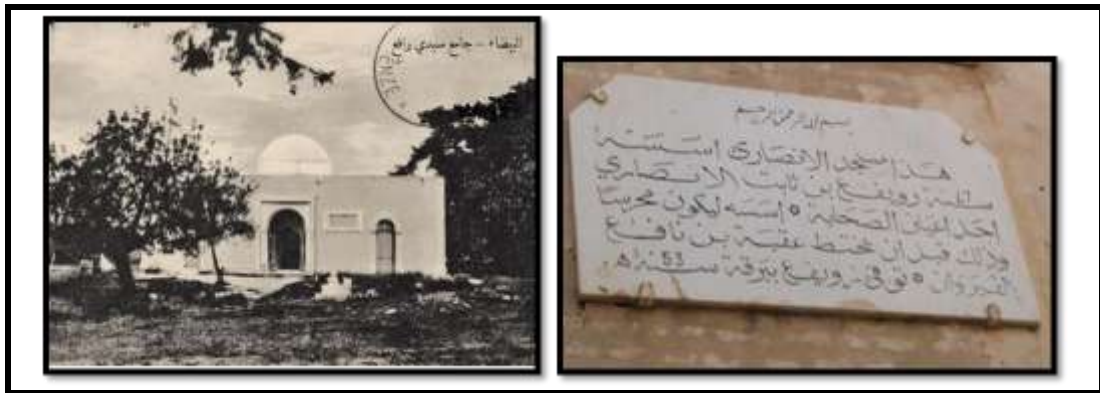 البيضاء - جامع سيدي رافع
بسم الله الرحمن الرحيم
هذا مسجد الانصاري اسسه
رويفع بن ثابت الانصاري
احد الصحابة ٥ اسسه ليكون محرسا
وذلك قبل ان يختط عقبة بن نافع
القيروان ٥ توفى رويفع ببرقة سنة 53 هـ